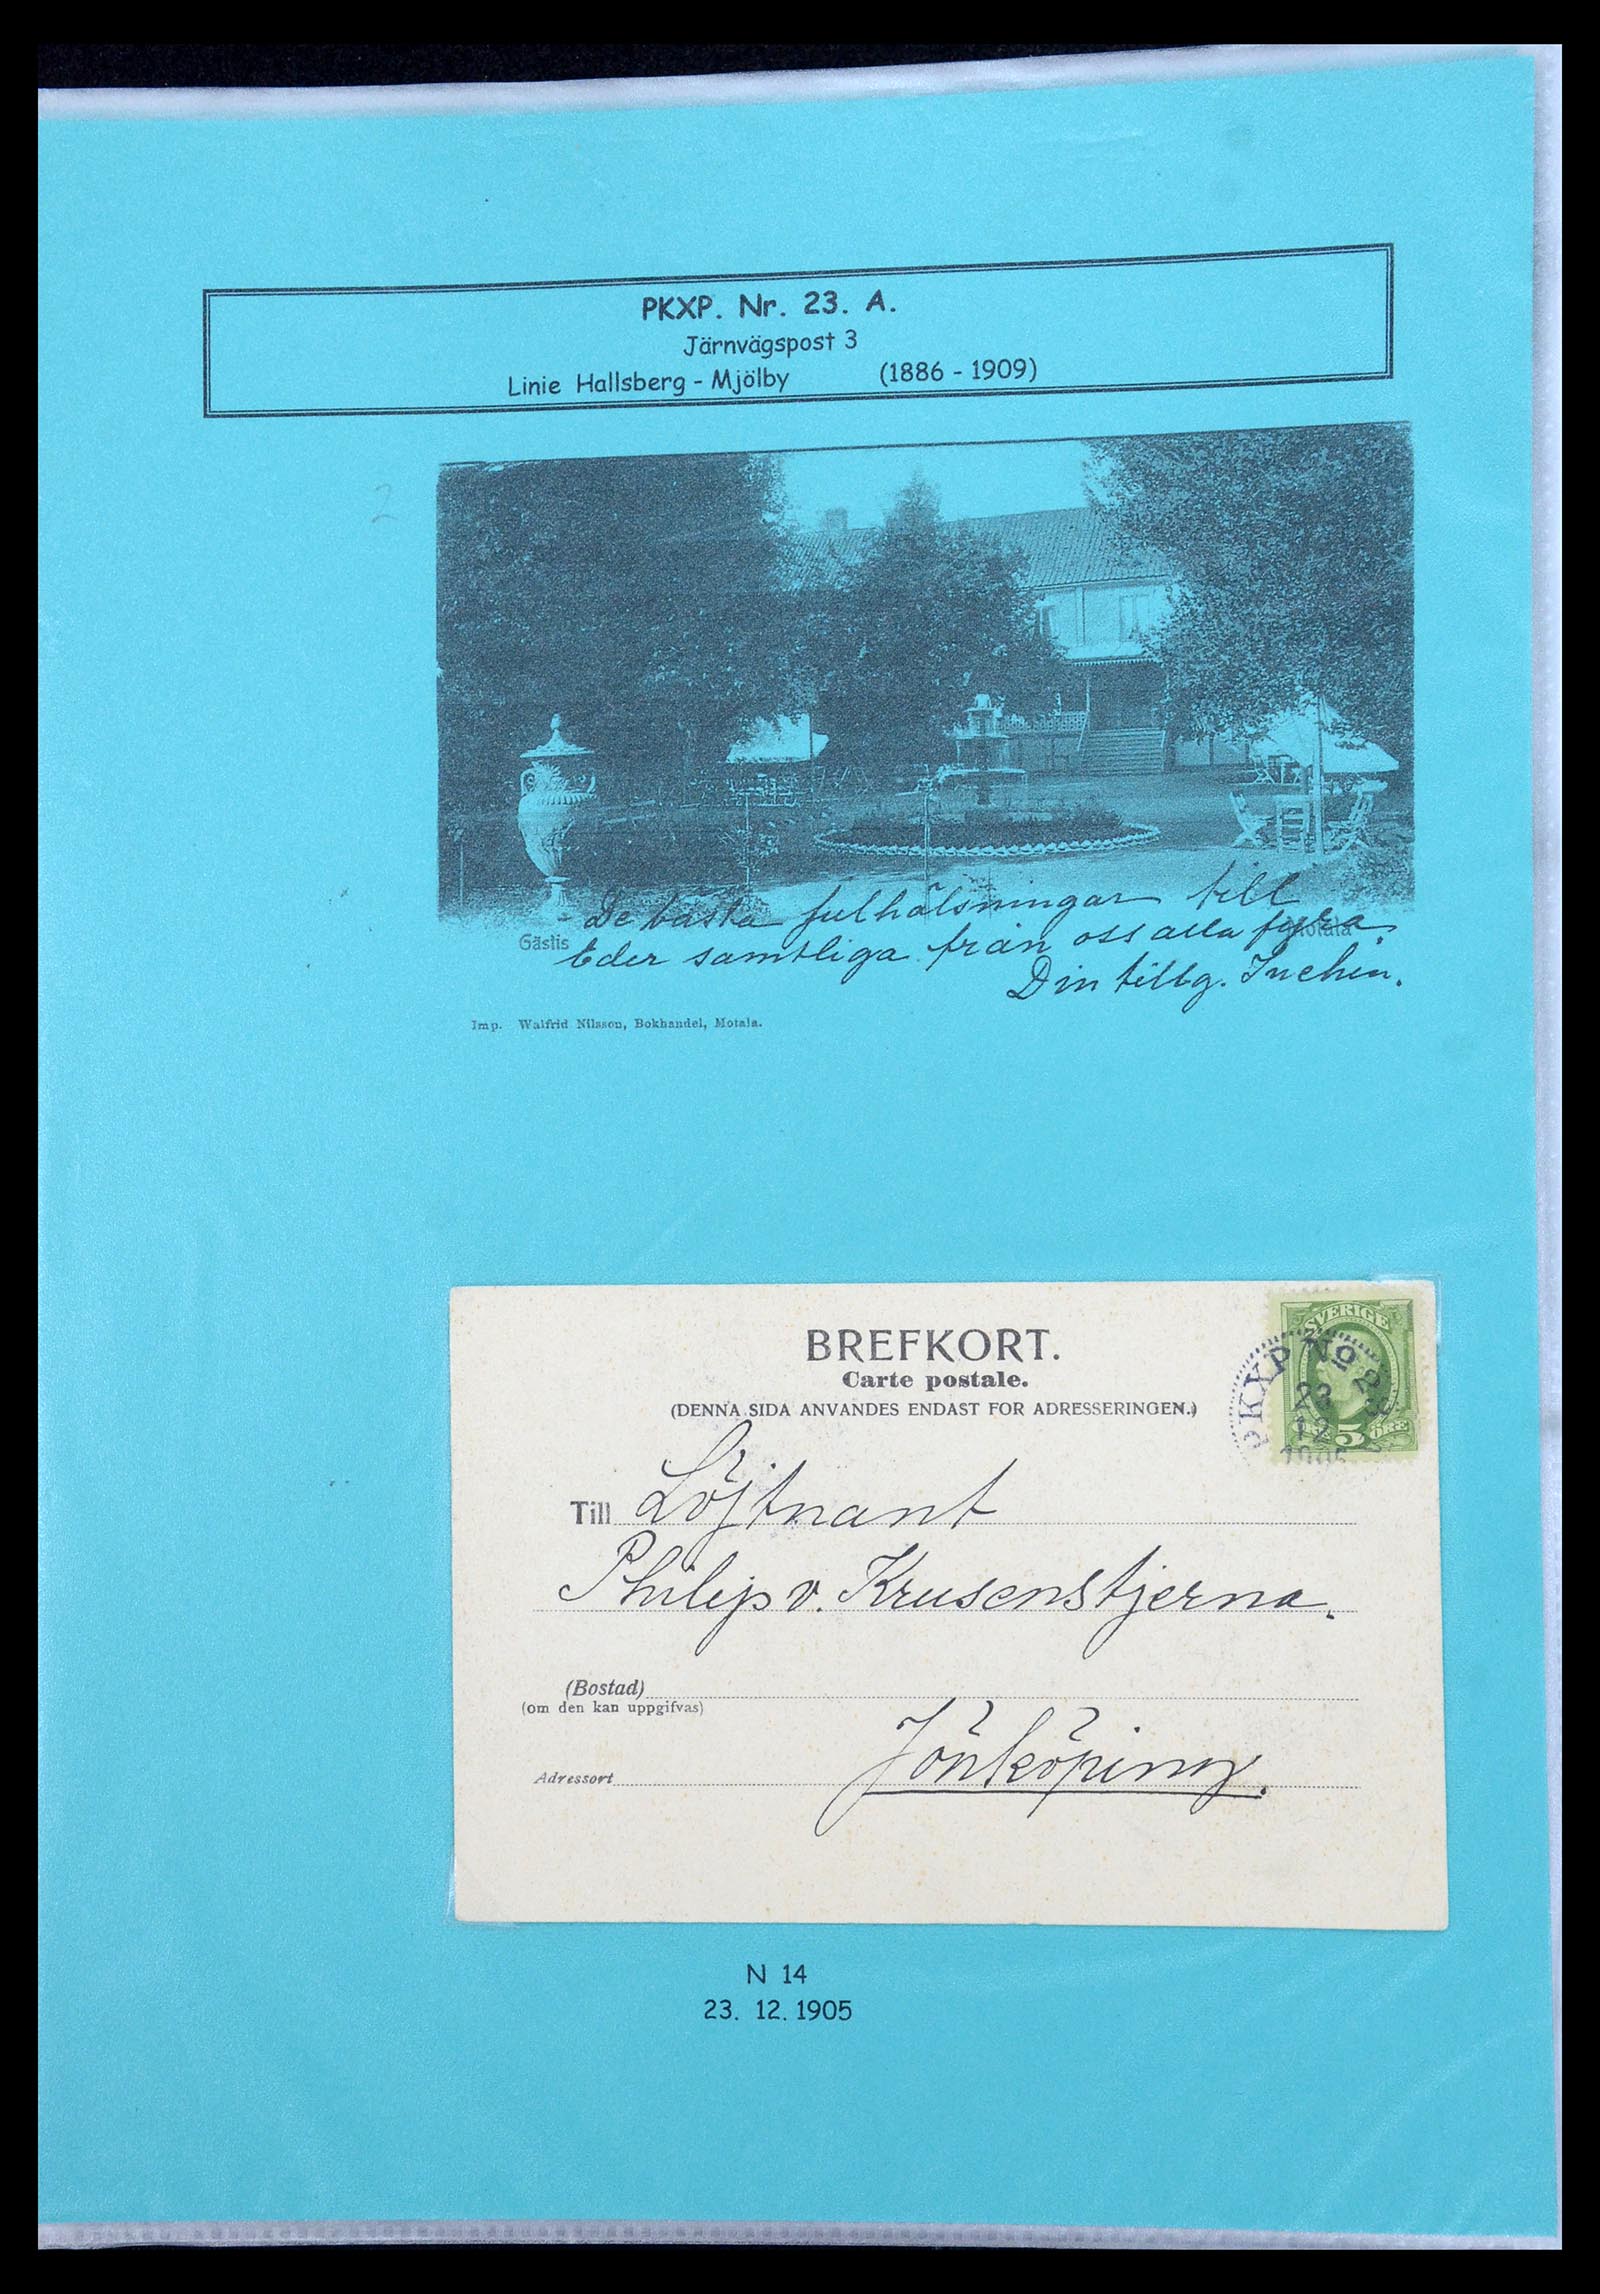 PKXP. Nr. 23. A.
Järnvägspost 3
Linie Hallsberg - Mjölby (1886 - 1909)
2
De bästa julhälsningar till
Gästis Motala
Eder samtliga från oss alla fyra.
Din tillg.
Imp. Walfrid Nilsson, Bokhandel, Motala.
BREFKORT.
Carte postale.
(DENNA SIDA ANVANDES ENDAST FOR ADRESSERINGEN.)
SVERIGE
PKXP No 23
23
12
1905
ÖRE 5 ÖRE
Till Löjtnant
Philip v. Krusenstjerna.
(Bostad)
(om den kan uppgifvas)
Jönköping.
Adressort
N 14
23. 12. 1905